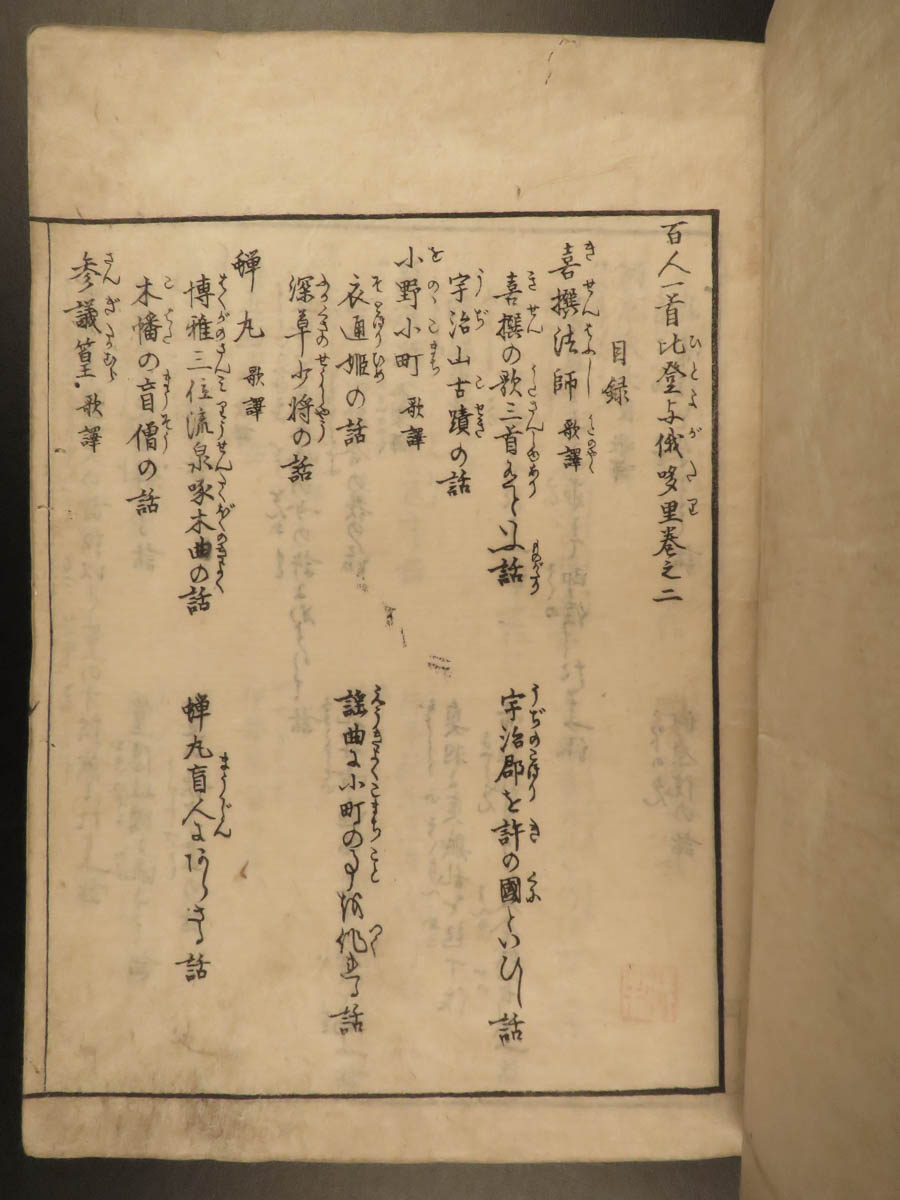 百人一首比登与俄哆里巻之二
目録
喜撰法師 歌譯
喜撰の歌三首ありといふ話
宇治郡を許の國といひし話
宇治山古蹟の話
小野小町 歌譯
衣通姫の話
謡曲に小町の事を作れる話
深草少将の話
蝉丸 歌譯
博雅三位流泉啄木曲の話
蝉丸盲人にあらさる話
木幡の盲僧の話
参議篁 歌譯